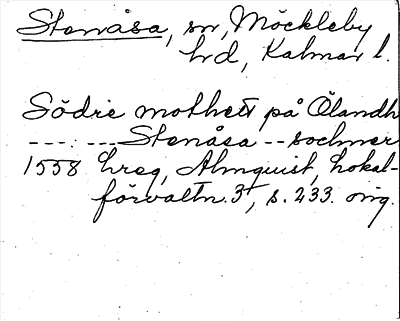 Stenåsa, sn, Möckleby
hd, Kalmar l.
Södre mothett på Ölandh
----:---- Stenåsa -- sochner
1558 hreg, Almquist, Lokal-
förvaltn. 3, s. 233. orig.